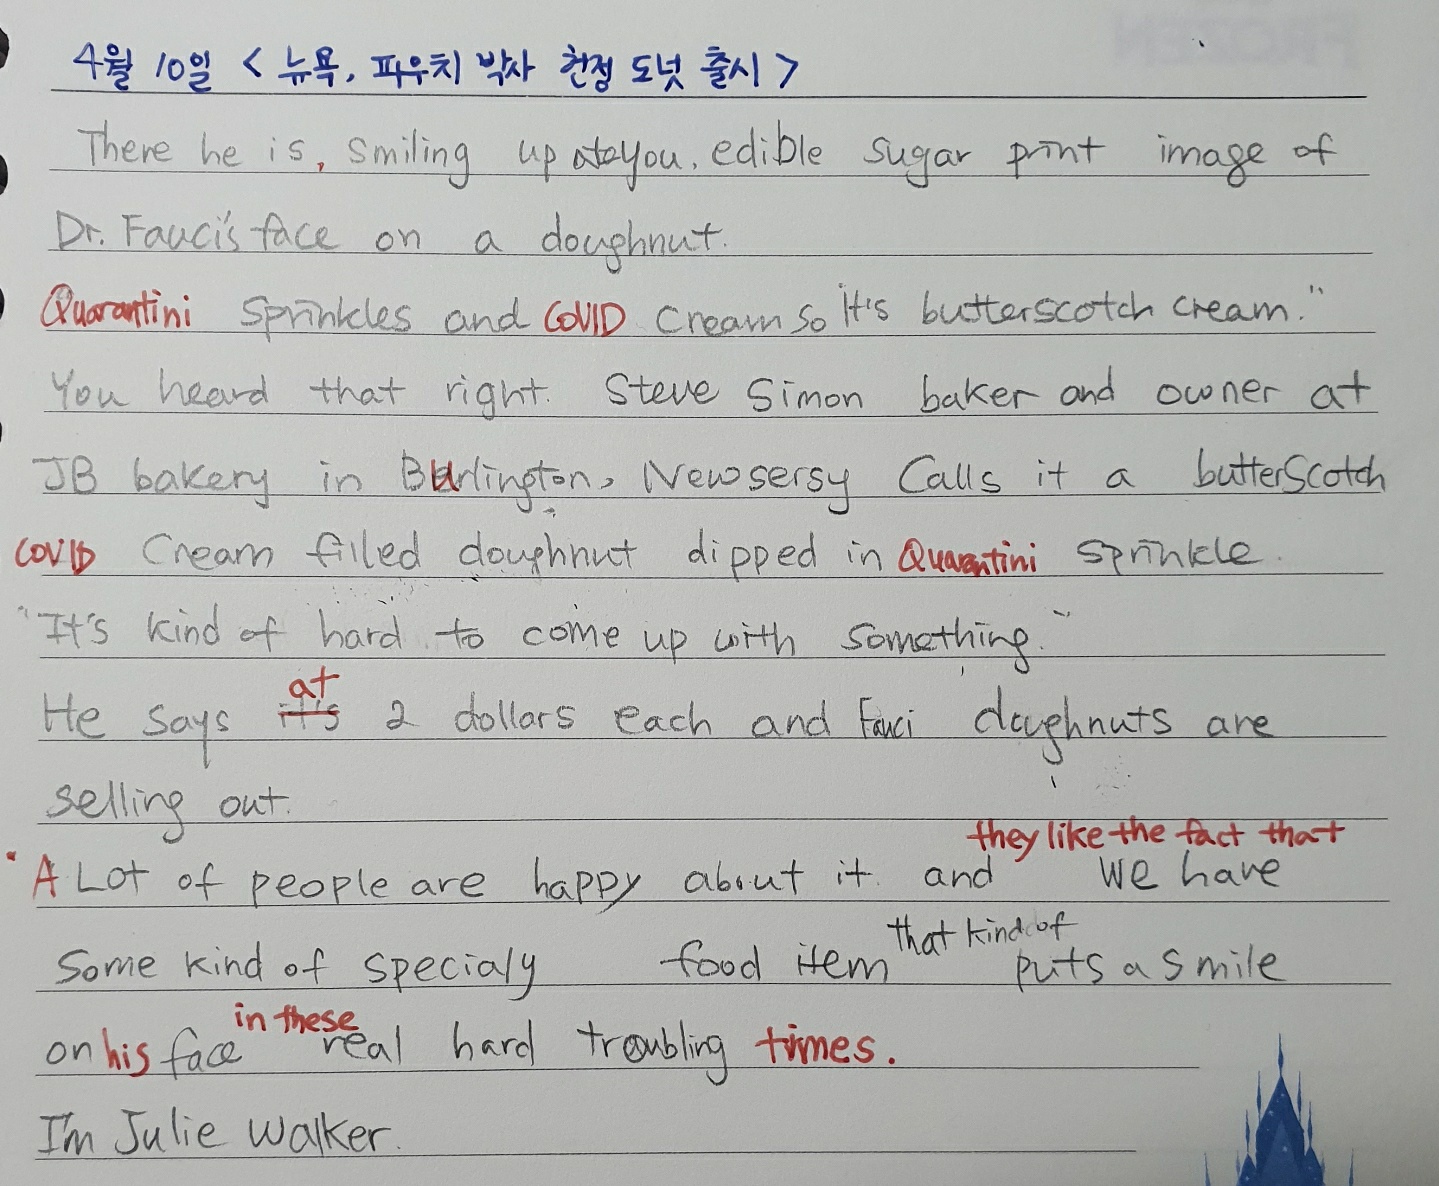 4월 10일 < 뉴욕, 파우치 박사 한정 도넛 출시 >
There he is, smiling up at you, edible sugar print image of
Dr. Fauci's face on a doughnut.
Quarantini sprinkles and COVID cream so it's butterscotch cream."
You heard that right. Steve Simon baker and owner at
JB bakery in Burlington, New sersy Calls it a butterscotch
COVID Cream filled doughnut dipped in Quarantini sprinkle.
"It's kind of hard to come up with something."
at
He says it's 2 dollars each and Fauci doughnuts are
selling out.
they like the fact that
"A Lot of people are happy about it and we have
that kind of
Some kind of specialy food item puts a smile
in these
on his face real hard troubling times.
I'm Julie Walker.